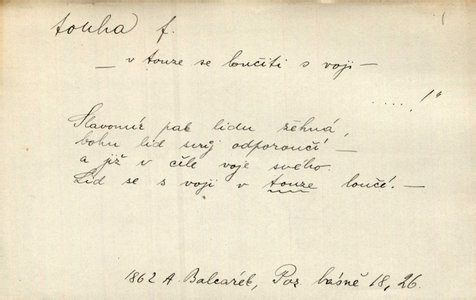 touha f.
— v touze se loučiti s voji —
.....!"
Slavomír pak lidu žehná,
bohu lid svůj odporoučí —
a již v čele voje svého.
Lid se s voji v touze loučí. —
1862 A. Balcařík, Poz. básně 18, 26.